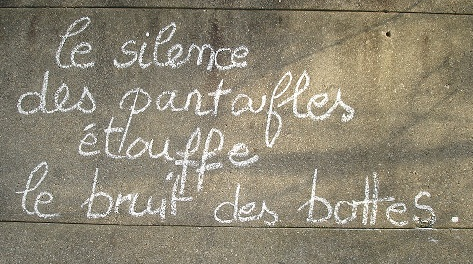 le silence
des pantafles
étouffe
le bruit des bottes.